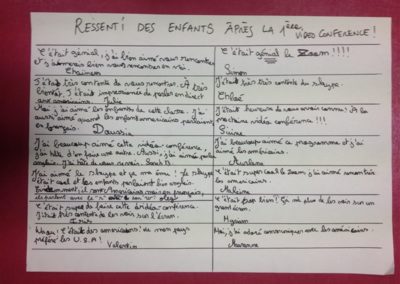 RESSENTI DES ENFANTS APRÈS LA 1ère VIDEO CONFERENCE !
C'était génial, j'ai bien aimé vous rencontrer
et j'aimerais bien vous rencontrer en vrai.
Chaïneze
J'étais très contente de vous rencontrer. À très
bientôt, j'étais impressionnée de parler en direct
aux américains. Julie
Moi j'ai aimé les enfants de cette classe j'ai
aussi aimé quand les enfants américains parlaient
en français.
J'ai beaucoup aimé cette vidéo conférence,
j'ai hâte d'en faire une autre. Aussi, j'ai aimé parler
anglais. J'ai hâte de vous revoir. Sarah
J'ai aimé le skype et ça m'a ému ! le skype
était cool et les enfants parlaient très anglais.
C'était super de faire cette vidéo conférence.
J'étais très contente de les voir sur l'écran.
Iris
Waou ! C'était des américains ! de mon pays
préféré les U.S.A !
Valentin
C'était génial le Zoom !!!!
Simon
J'étais très très contente du skype.
Chloé
J'étais heureuse de vous avoir connu ! À la
prochaine vidéo conférence !!!
J'ai beaucoup aimé ce programme et j'ai
aimé les américains.
C'était super cool le Zoom, j'ai aimé rencontrer
les américains.
C'était trop bien ! Ça m'a plu de les voir sur un
grand écran.
Myriam
Moi, j'ai adoré communiquer avec les américains.